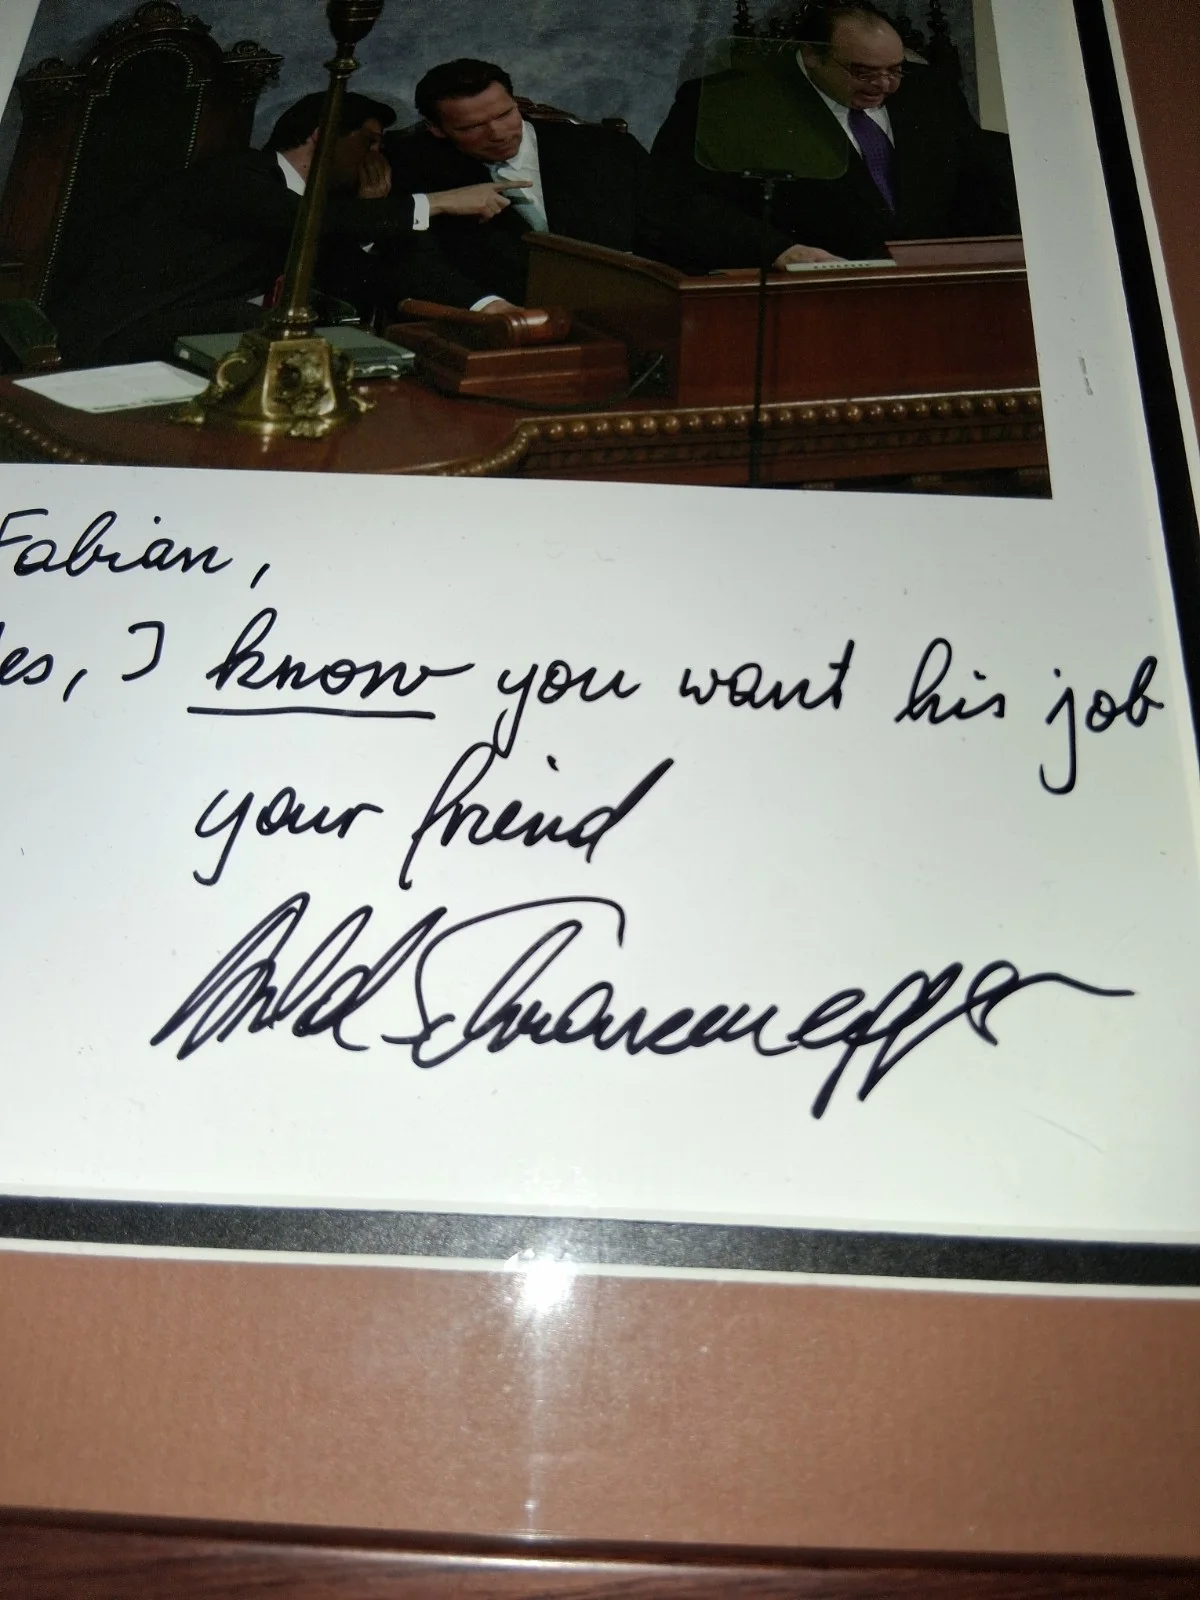 Fabian,
es, I know you want his job
your friend
Arnold Schwarzenegger